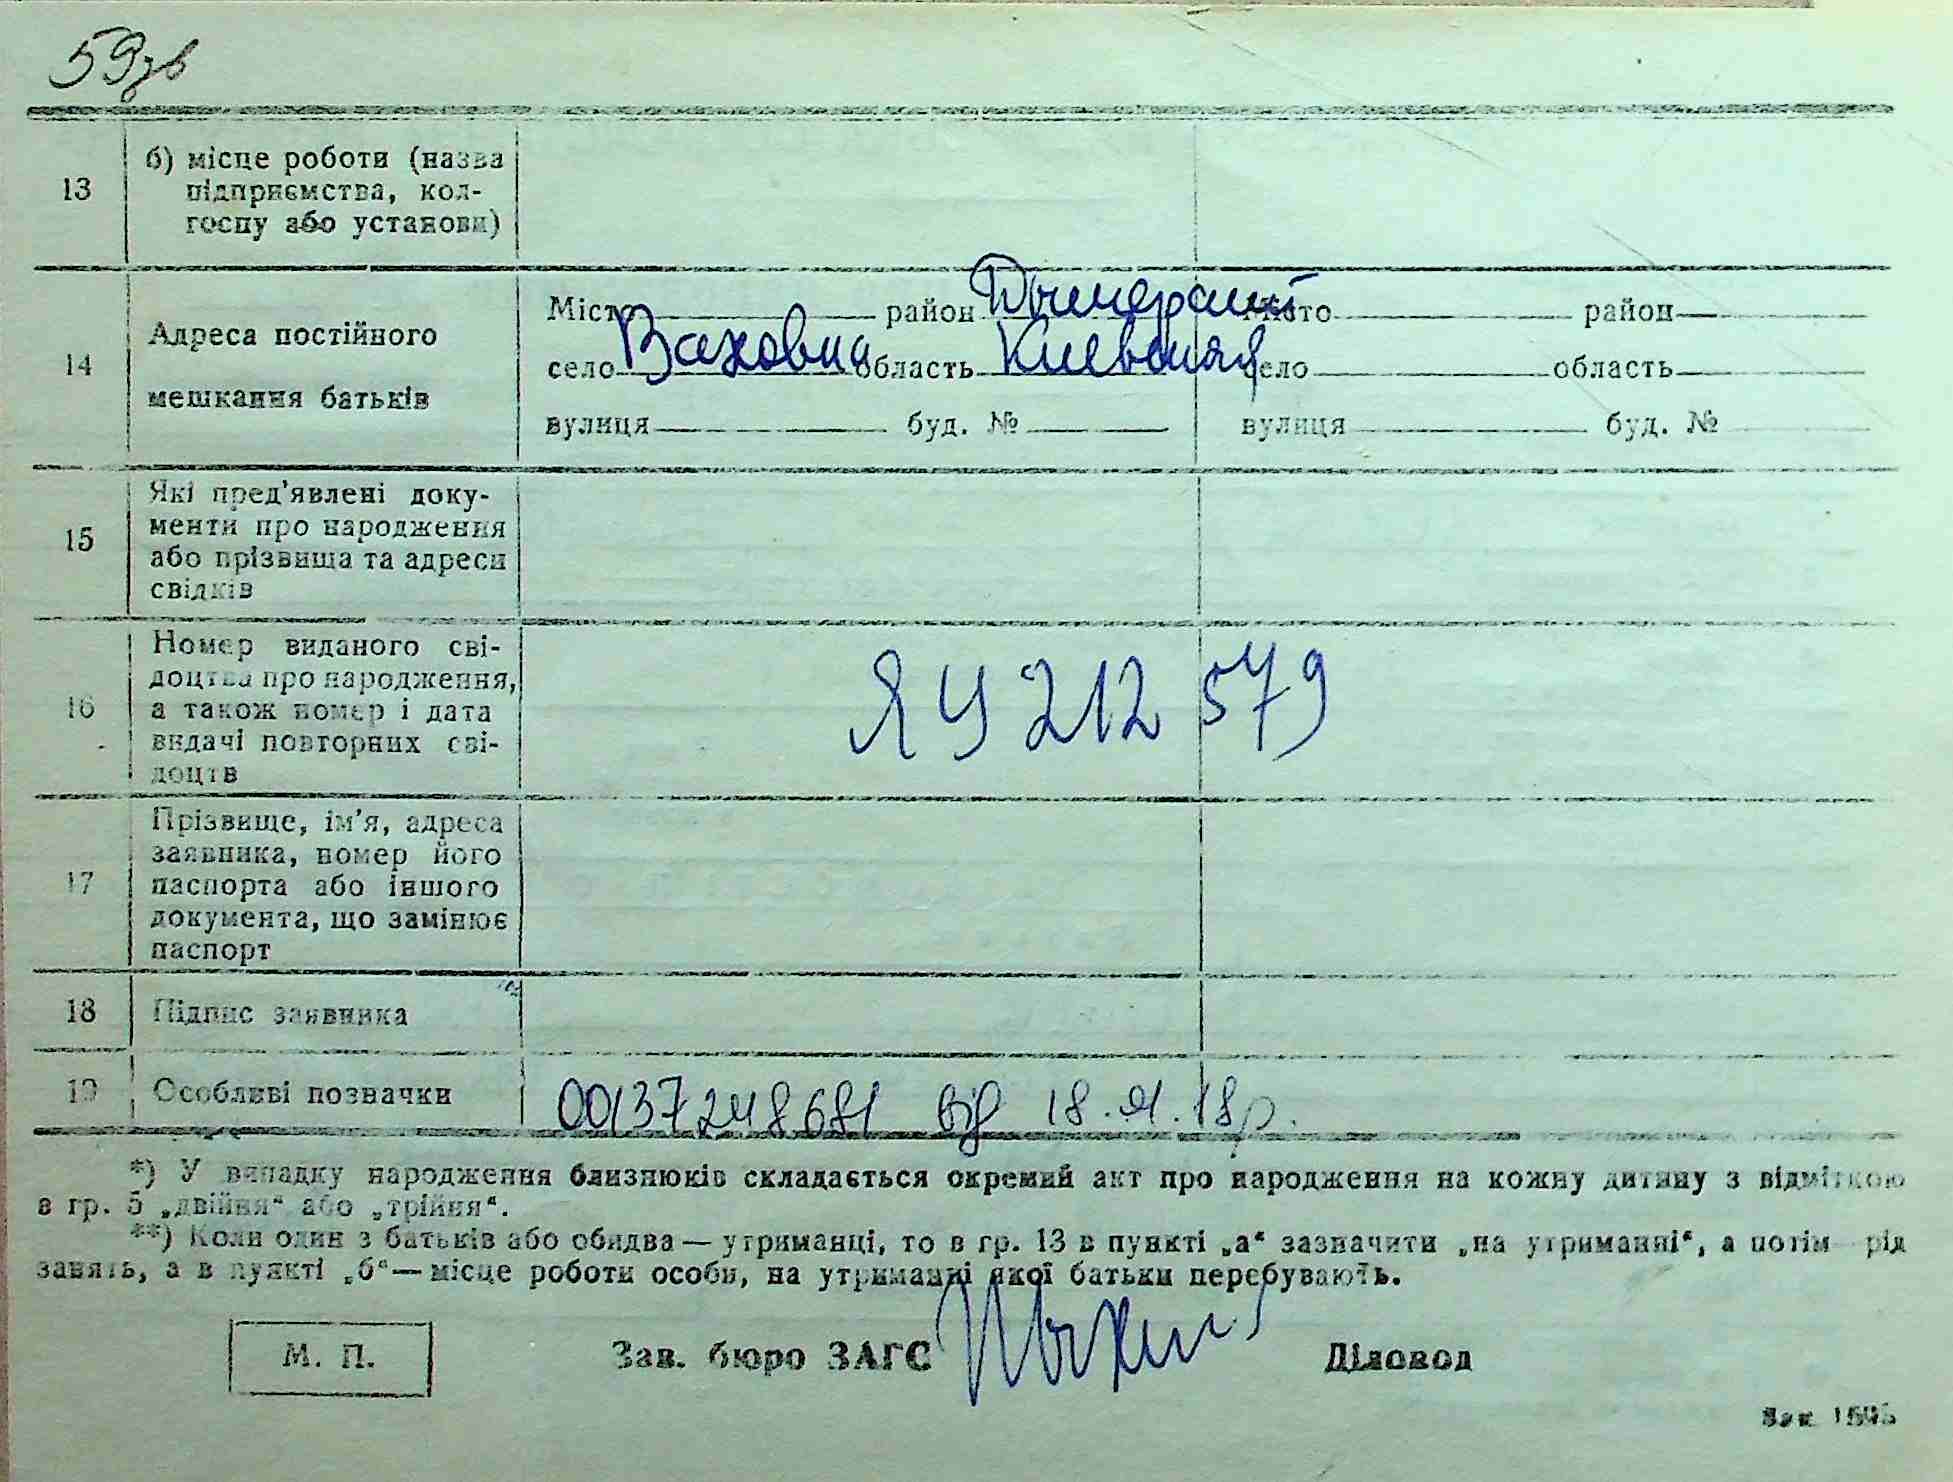 59зв
13
б) місце роботи (назва
підприємства, кол-
госпу або установи)
14
Адреса постійного
мешкання батьків
Місто район Дымерский Місто район
село Ваховка область Киевская село область
вулиця буд. № вулиця буд. №
15
Які пред'явлені доку-
менти про народження
або прізвища та адреси
свідків
16
Номер виданого сві-
доцтва про народження,
а також номер і дата
видачі повторних сві-
доцтв
ЯЧ 212 579
17
Прізвище, ім'я, адреса
заявника, номер його
паспорта або іншого
документа, що замінює
паспорт
18
Підпис заявника
19
Особливі позначки
00137248681 від 18.01.18р.
*) У випадку народження близнюків складається окремий акт про народження на кожну дитину з відміткою
в гр. 5 „двійня“ або „трійня“.
**) Коли один з батьків або обидва — утриманці, то в гр. 13 в пункті „а“ зазначити „на утриманні“, а потім рід
занять, а в пункті „б“ — місце роботи особи, на утриманні якої батьки перебувають.
М. П.
Зав. бюро ЗАГС
Діловод
Зак 1695